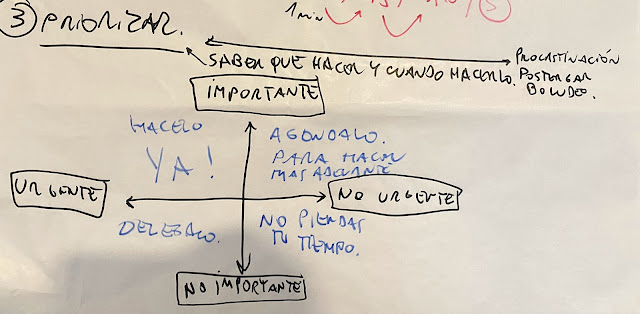 1 min
3 PRIORIZAR.
SABER QUE HACER Y CUANDO HACERLO.
PROCASTINACIÓN
POSTERGAR
BOLUDEO.
IMPORTANTE
HACELO
YA!
AGENDALO.
PARA HACER
MAS ADELANTE
URGENTE
NO URGENTE
DELEGALO.
NO PIERDAS
TU TIEMPO.
NO IMPORTANTE